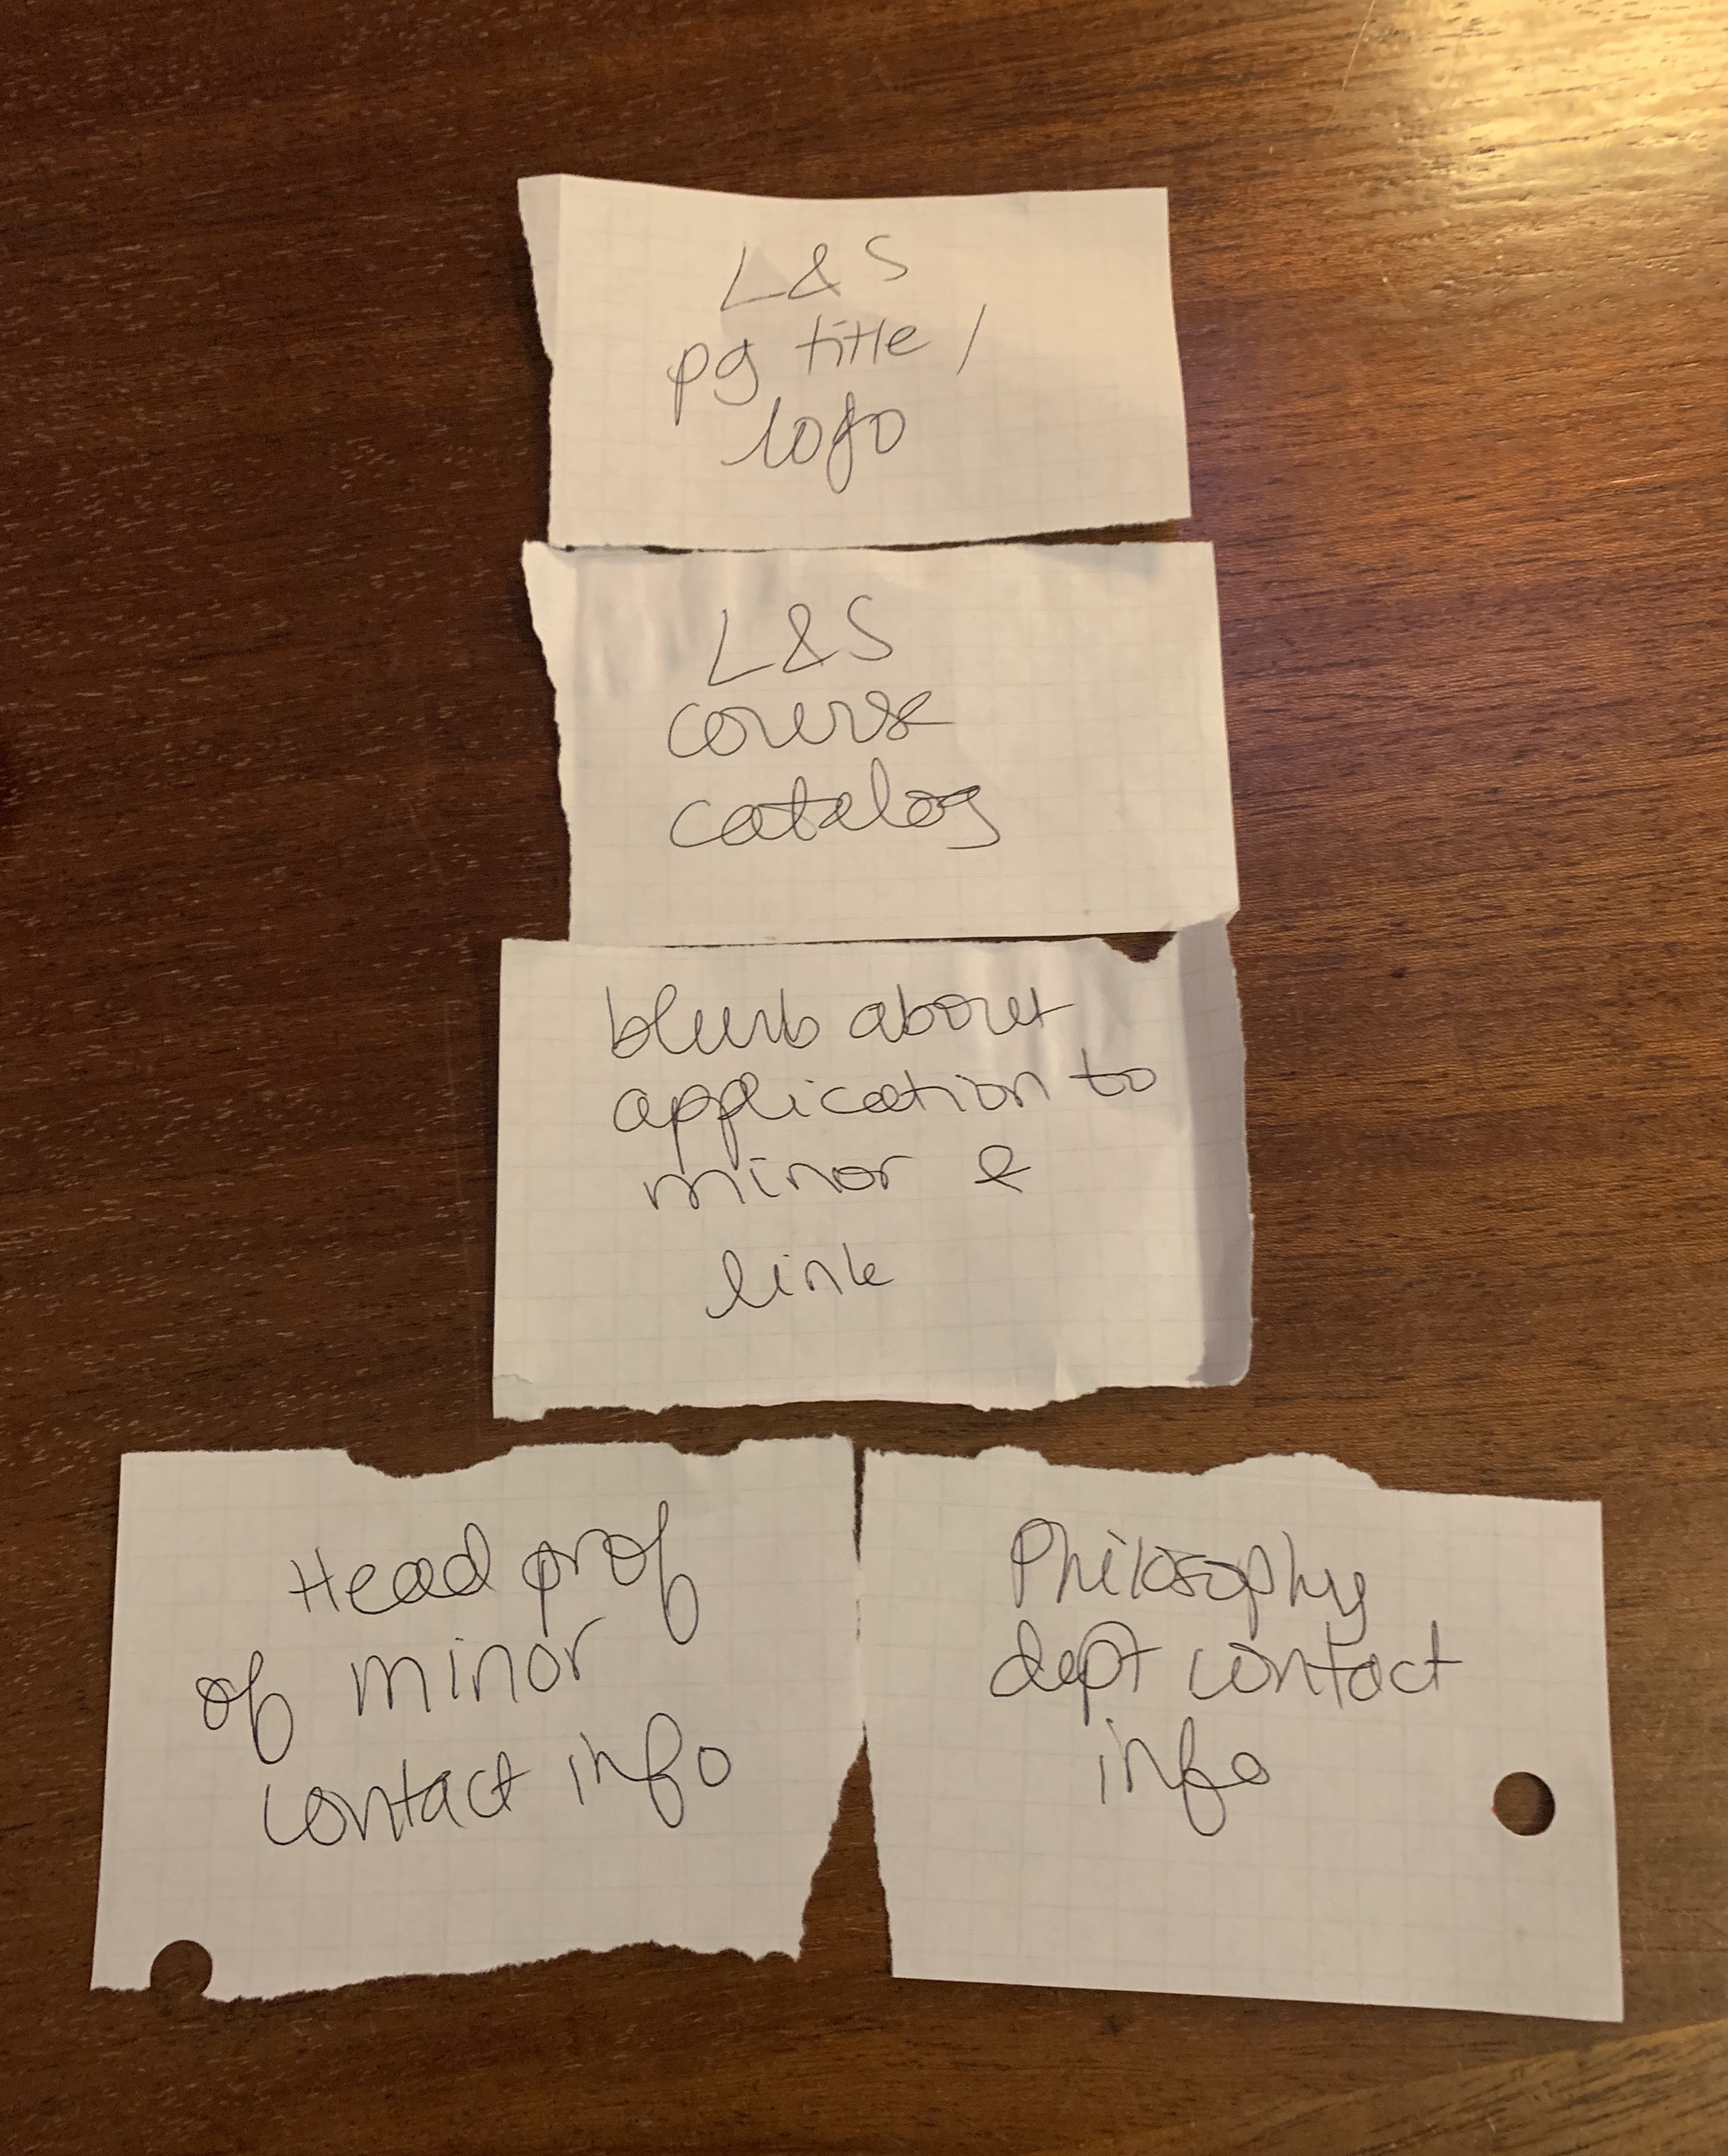 L&S
pg title /
logo
L&S
course
catalog
blurb about
application to
minor &
link
Head prof
of minor
contact info
Philosophy
dept contact
info